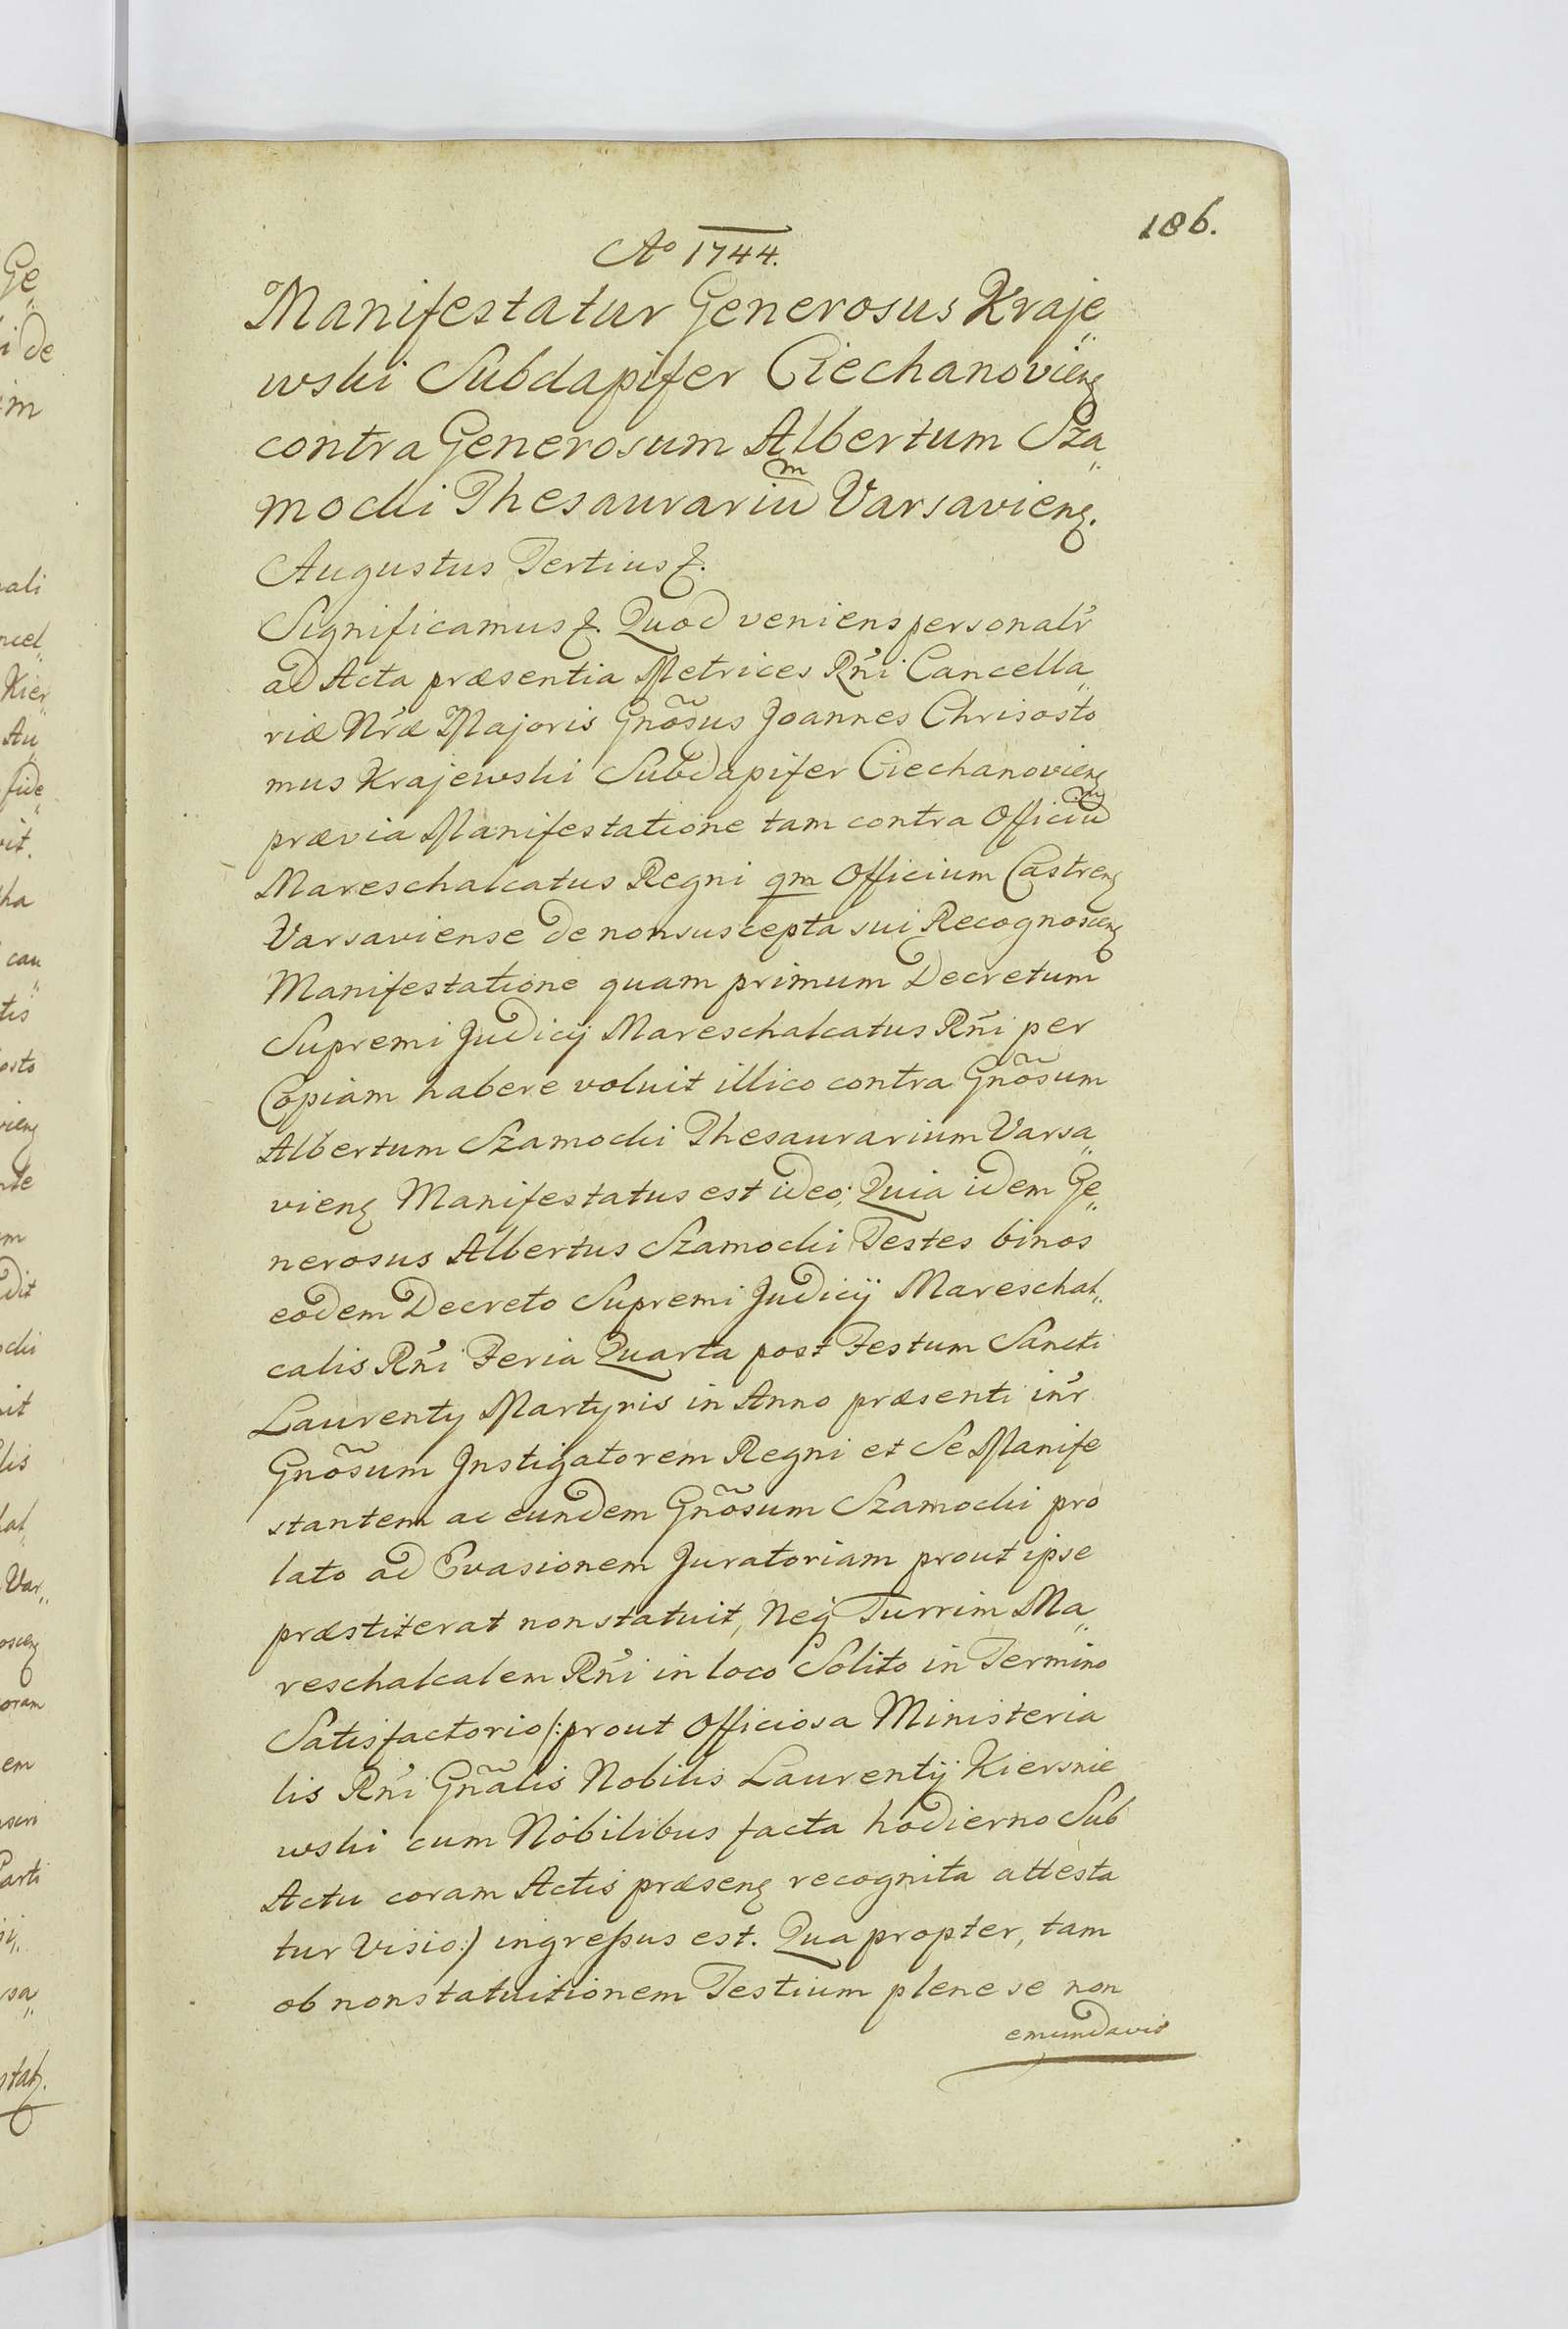 186.
Ao 1744.
Manifestatur Generosus Kraje„
wski Subdapifer Ciechanovien̄
contra Generosum Albertum Sza„
mocki Thesaurariũm Varsavien̄.
Augustus Tertius &.
Significamus &. Quod veniens personalr̃
ad Acta præsentia Metrices Rñi Cancella„
riæ Nr̃æ Majoris Gnõsus Joannes Chrisosto
mus Krajewski Subdapifer Ciechanovien̄
prævia Manifestatione tam contra Officiũm
Mareschalcatus Regni qm Officium Castren̄
Varsaviense de non suscepta sui Recognoscen̄
Manifestatione quam primum Decretum
Supremi Judicij Mareschalcatus Rñi per
Copiam habere voluit illico contra Gnõsum
Albertum Szamocki Thesaurarium Varsa„
vien̄ Manifestatus est ideo; Quia idem Ge„
nerosus Albertus Szamocki Testes binos
eodem Decreto Supremi Judicij Mareschal„
calis Rñi Feria Quarta post Festum Sancti
Laurenty Martyris in Anno præsenti inr̃
Gnõsum Instigatorem Regni et Se Manife
stantem ac eundem Gnõsum Szamocki pro
lato ad Evasionem Juratoriam prout ipse
præstiterat non statuit, Neq Turrim Ma„
reschalcalem Rñi in loco Solito in Termino
Satisfactorio /: prout Officiosa Ministeria
lis Rñi Gñalis Nobilis Laurentij Kiersnie
wski cum Nobilibus facta hodierno Sub
Actu coram Actis præsen̄ recognita attesta
tur Visio :/ ingressus est. Qua propter, tam
ob non statuitionem Testium plene se non
emundavit